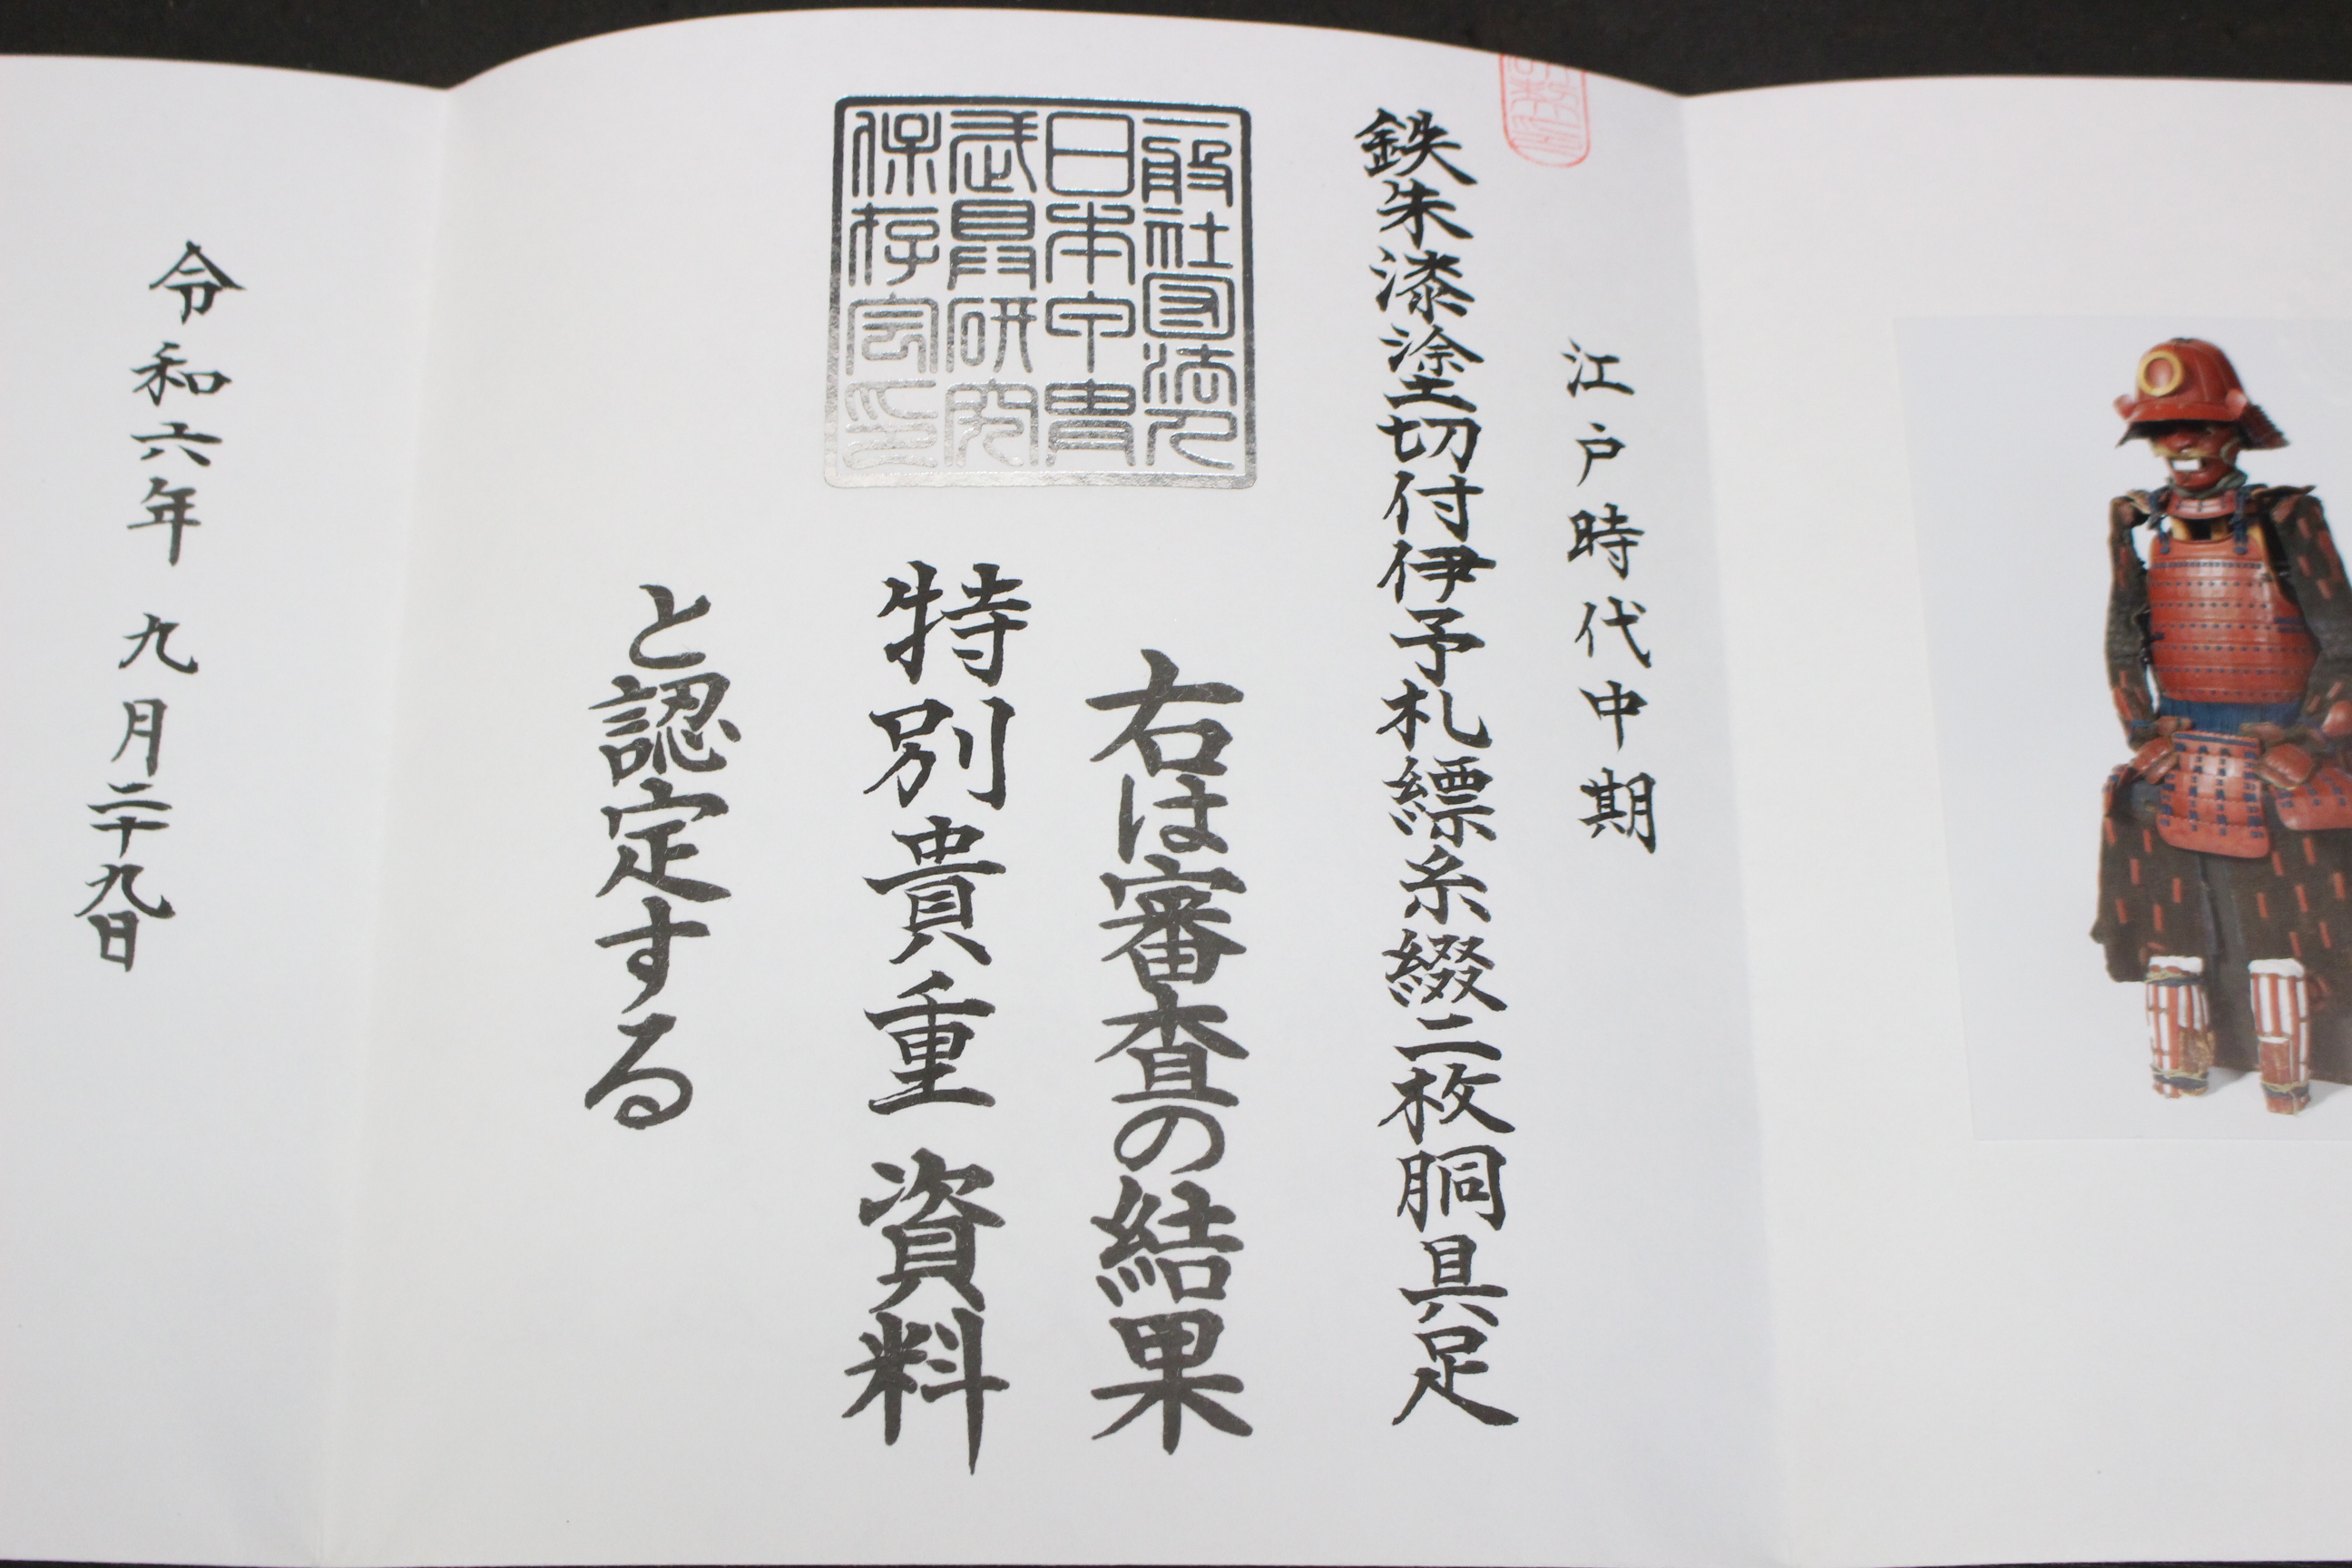 江戸時代中期
鉄朱漆塗切付伊予札縹糸綴二枚胴具足
一般社団法人
日本甲冑
武具研究
保存会印
右は審査の結果
特別貴重 資料
と認定する
令和六年 九月二十九日